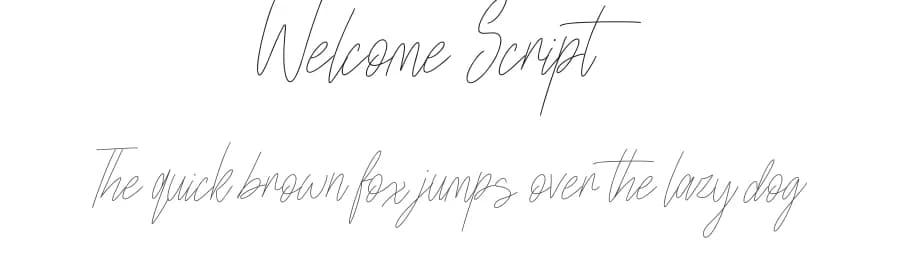 Welcome Script
The quick brown fox jumps over the lazy dog